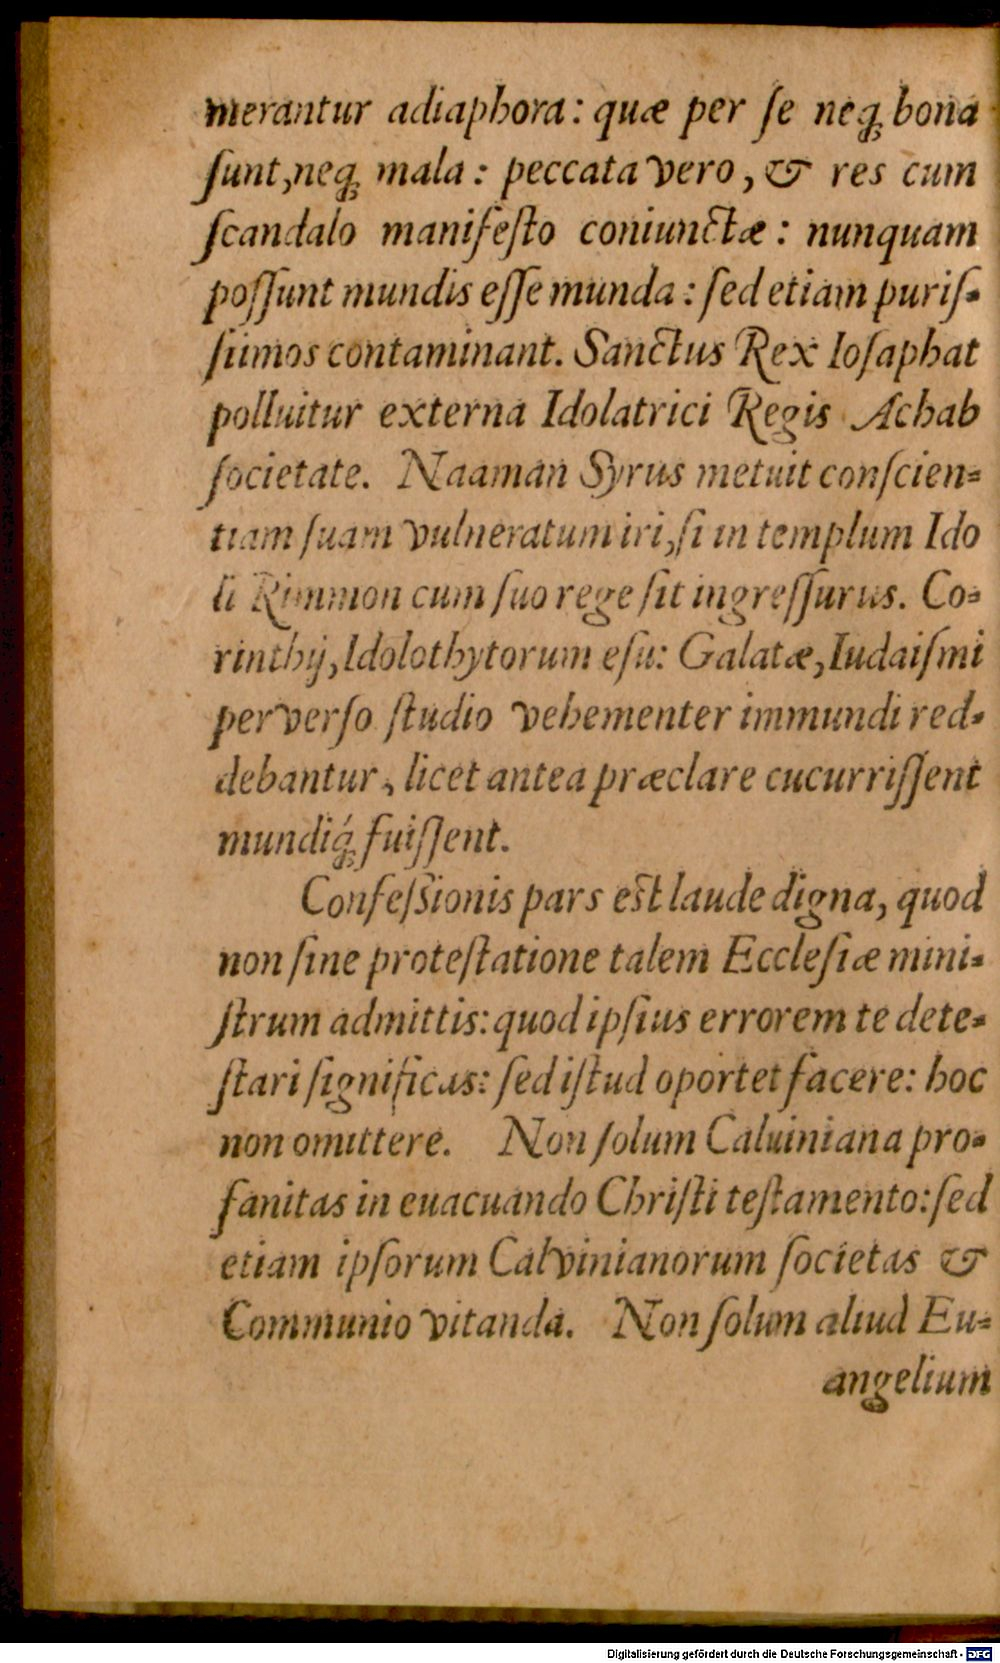 merantur adiaphora: quæ per ſe neq; bona
ſunt, neq; mala: peccata vero, & res cum
ſcandalo manifeſto coniunctæ: nunquam
poſſunt mundis eſſe munda: ſed etiam puriſ-
ſimos contaminant. Sanctus Rex Ioſaphat
polluitur externa Idolatrici Regis Achab
ſocietate. Naaman Syrus metuit conſcien-
tiam ſuam vulneratum iri, ſi in templum Ido
li Rimmon cum ſuo rege ſit ingreſſurus. Co-
rinthij, Idolothytorum eſu: Galatæ, Iudaiſmi
perverſo ſtudio vehementer immundi red-
debantur, licet antea præclare cucurriſſent
mundiq́; fuiſſent.
Confeſsionis pars eſt laude digna, quod
non ſine proteſtatione talem Eccleſiæ mini-
ſtrum admittis: quod ipſius errorem te dete-
ſtari ſignificas: ſed iſtud oportet facere: hoc
non omittere. Non ſolum Caluiniana pro-
fanitas in euacuando Chriſti teſtamento: ſed
etiam ipſorum Calvinianorum ſocietas &
Communio vitanda. Non ſolum aliud Eu-
angelium
Digitalisierung gefördert durch die Deutsche Forschungsgemeinschaft - DFG